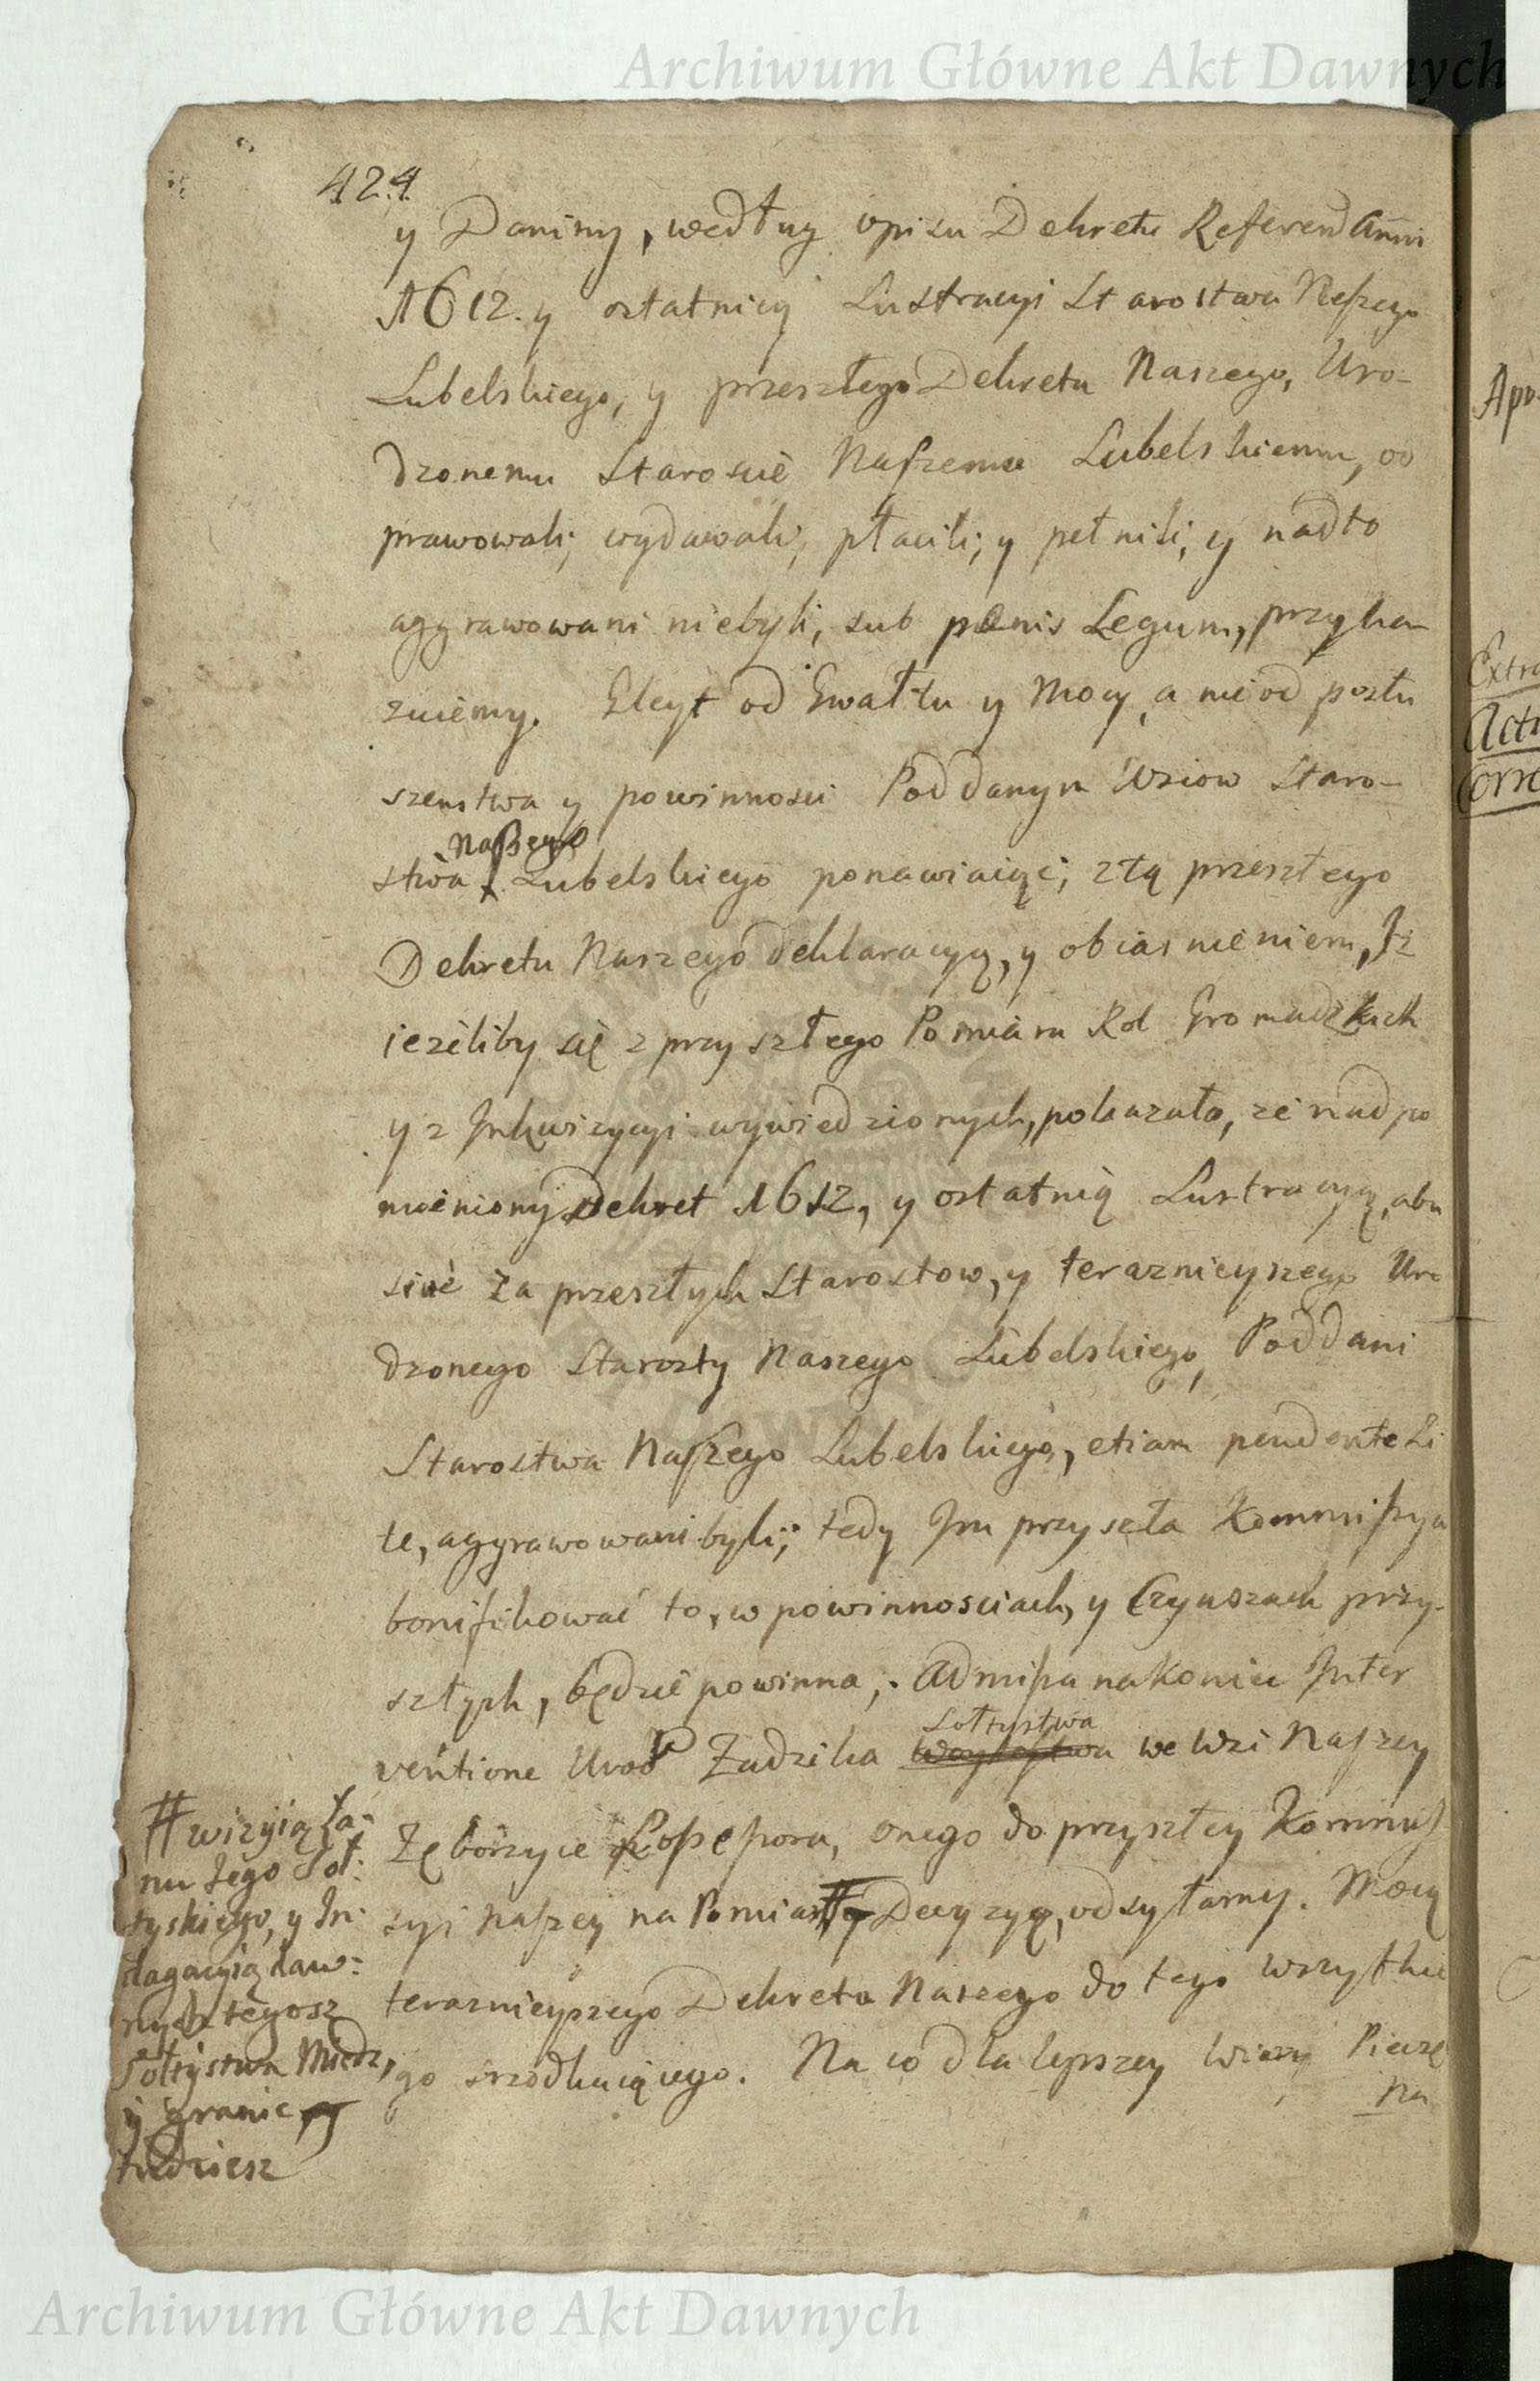 Archiwum Główne Akt Dawnych
424.
y Daniny, według opisu Dekretu Referend Anni
1612. y ostatniey Lustracyi Starostwa Naszego
Lubelskiego, y przeszłego Dekretu Naszego, Uro-
dzonemu Staroscie Naszemu Lubelskiemu, od
prawowali, wydawali, płacili, y pełnili, y nadto
aggrawowani niebyli, sub pœnis Legum, przyka-
zuiemy. Gleyt od Gwałtu y Mocy, a nie od posłu
szenstwa y powinnosci Poddanym Wsiow Staro-
Naszego
stwa Lubelskiego ponawiaiąc; z tą przeszłego
Dekretu Naszego deklaracyą, y obiasnieniem, Iż
ieżeliby się z przyszłego Pomiaru Rol Gromadzkich
y z Inkwizycyi wywiedzionych, pokazało, że nad po
mieniony Dekret 1612, y ostatnią Lustracyą, abu
sive za przeszłych Starostow, y teraznieyszego Uro
dzonego Starosty Naszego Lubelskiego, Poddani
Starostwa Naszego Lubelskiego, etiam pendente Li
te, aggrawowani byli; tedy Im przyszła Kommissya
bonifikować to, w powinnosciach, y Czynszach przy-
szłych, będzie powinna; Admissa nakoniec Inter
Sołtystwa
ventione Urod Zadzika we Wsi Naszey
Zęborzyce Possessora, onego do przyszłey Kommis
syi Naszey na Pomiar # y Decyzyą, odsyłamy. Mocą
teraznieyszego Dekretu Naszego do tego wszystkie
go srzodkuiącego. Na co dla lepszey wiary Pieczę
na
# wizyią Ła-
nu tego Soł:
tyskiego, y In-
dagacyią daw:
nych tegosz
Sołtystwa Miedz,
y granic
tudziesz
Apo-
Extra
Acti
Corre
Archiwum Główne Akt Dawnych